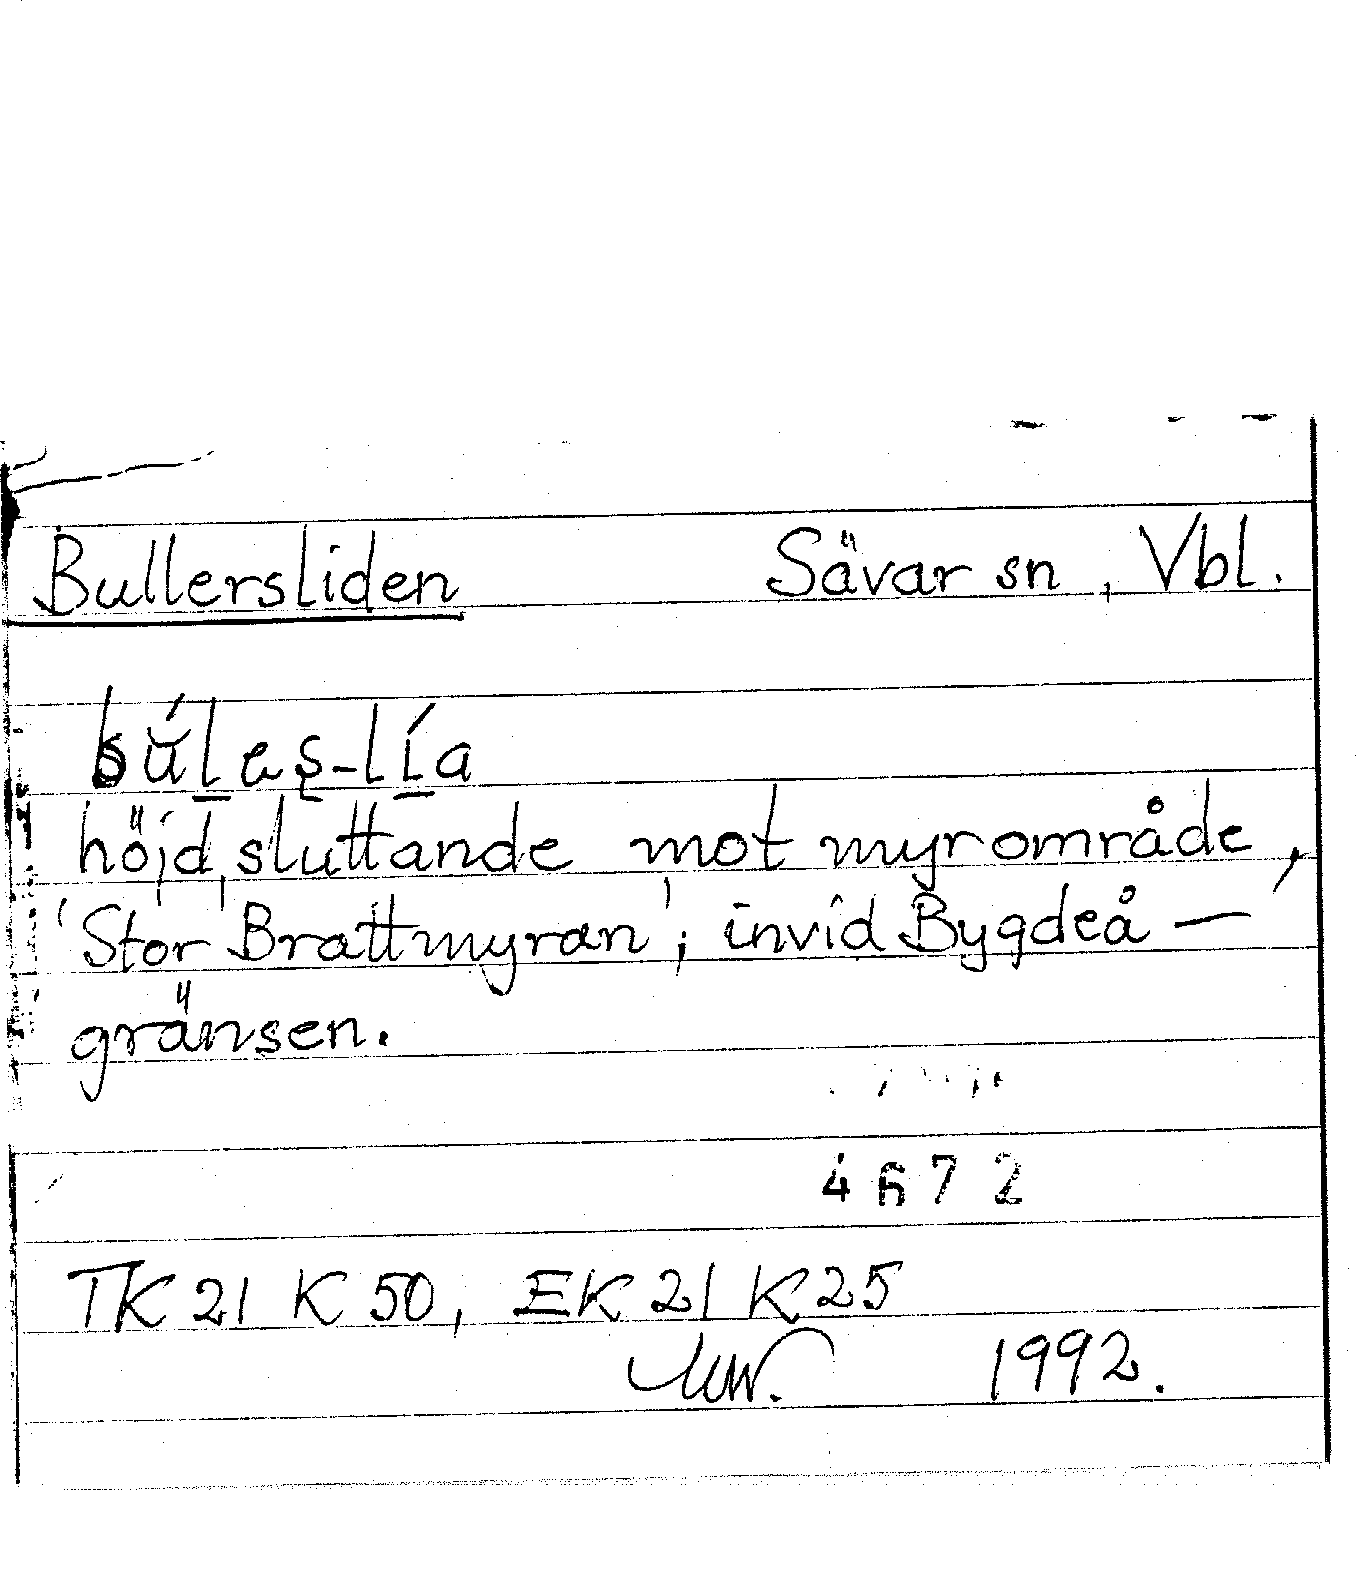 Bullersliden Sävar sn, Vbl.
höjd, sluttande mot myrområde,
'Stor Brattmyran'; invid Bygdeå –
gränsen.
4672
TK 21 K 50, EK 21 K 25
1992.